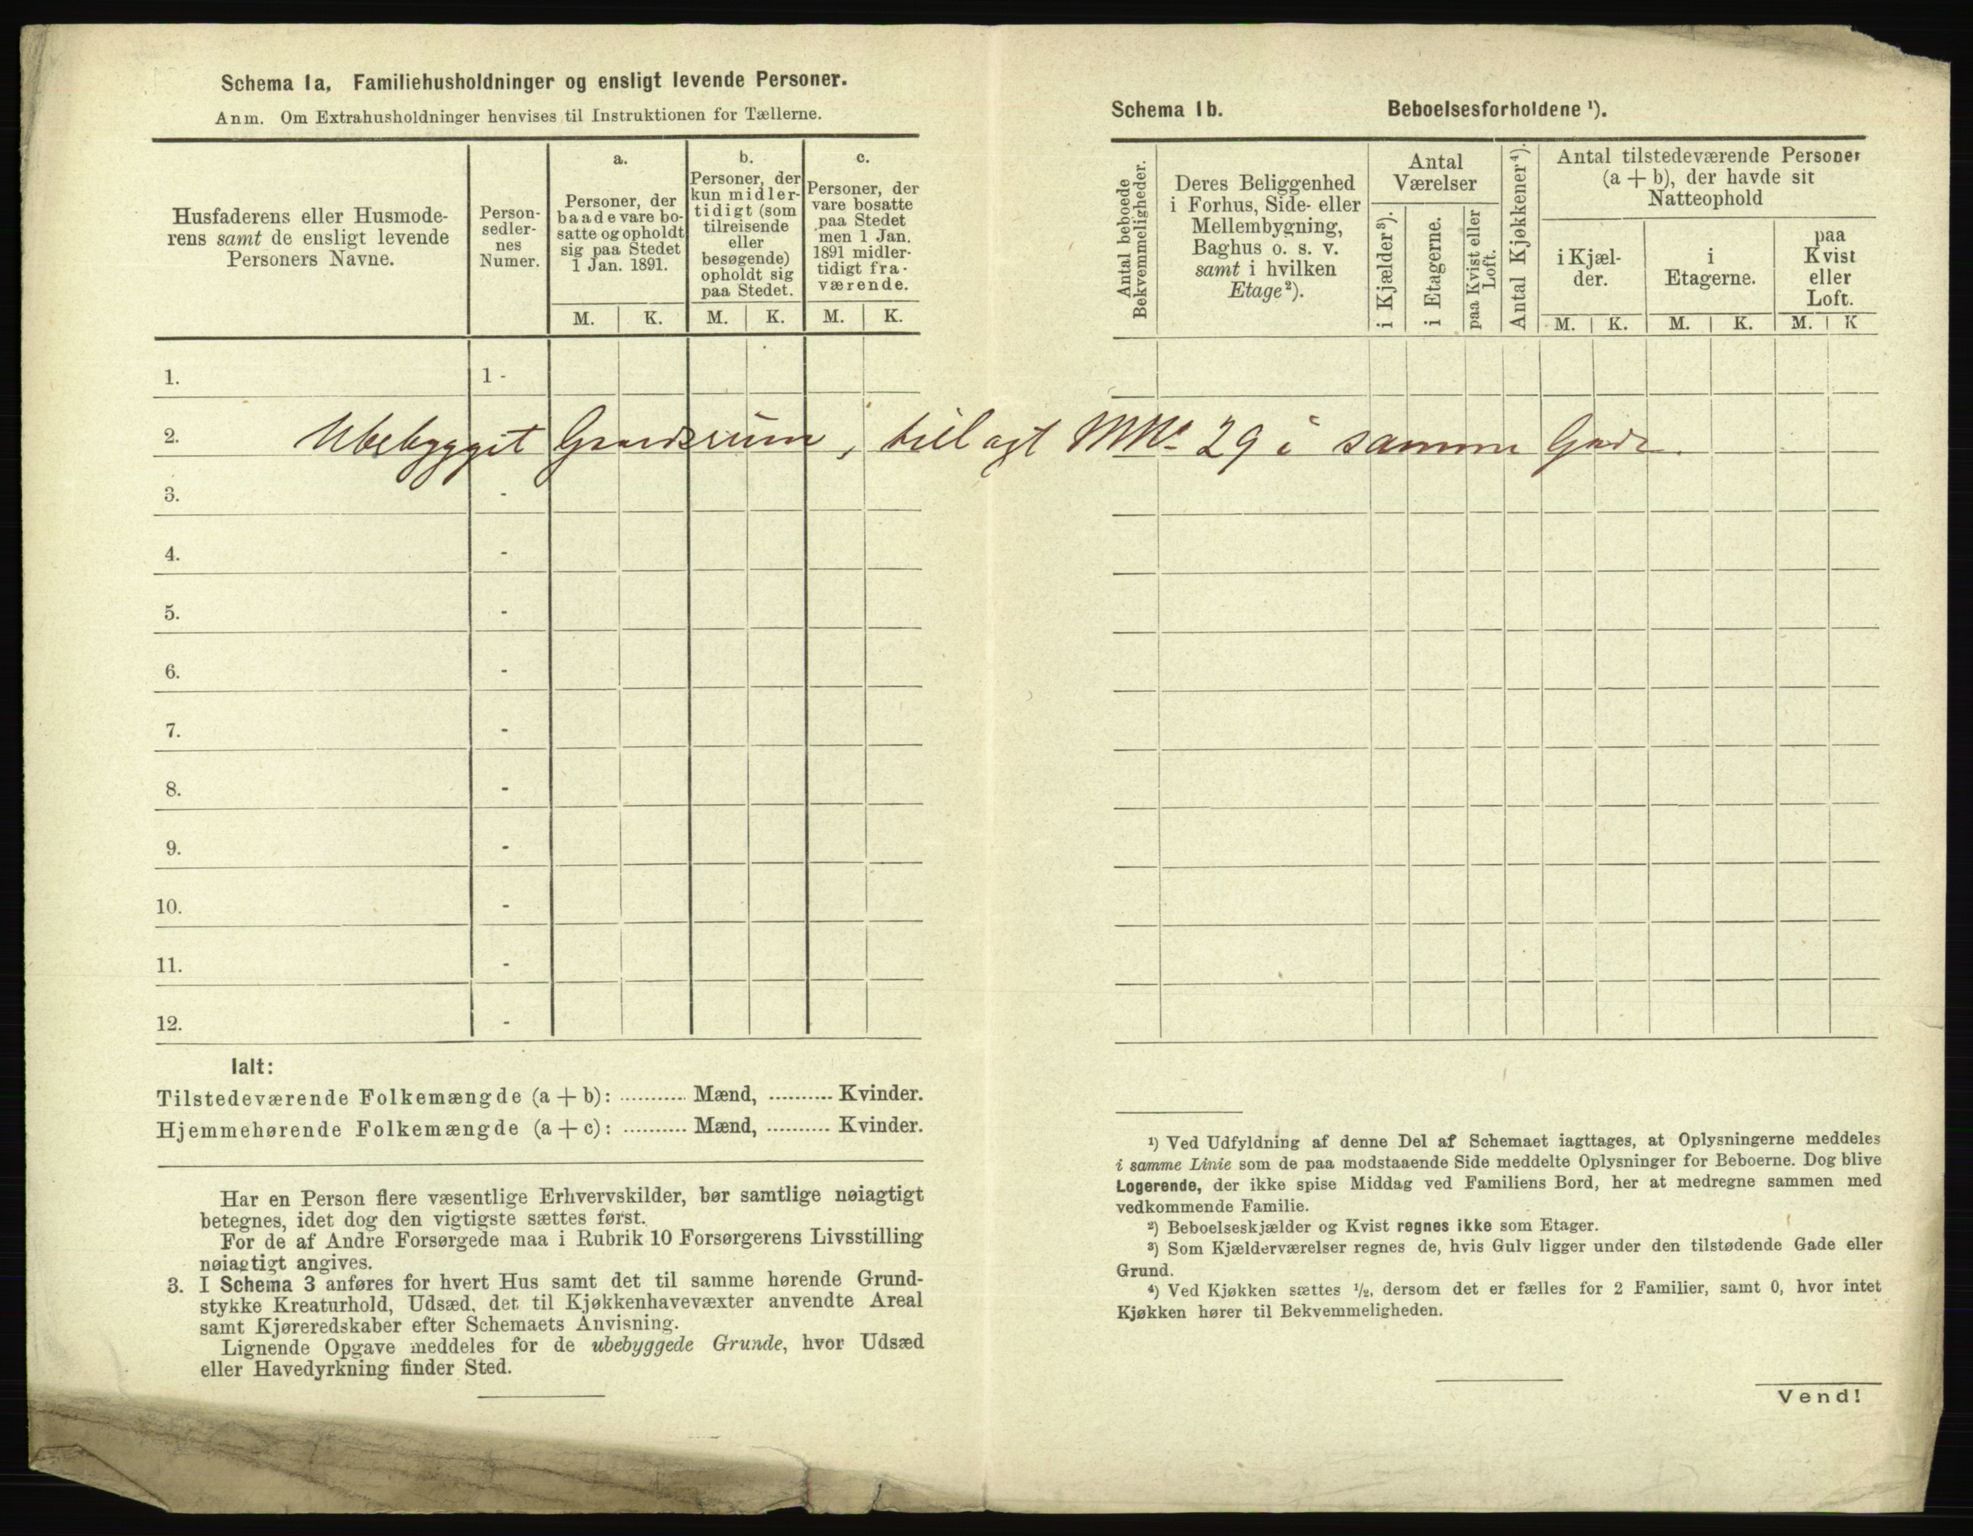 Schema 1a, Familiehusholdninger og ensligt levende Personer.
Anm. Om Extrahusholdninger henvises til Instruktionen for Tællerne.
Husfaderens eller Husmode-
rens samt de ensligt levende
Personers Navne.
Person-
sedler-
nes
Numer.
a.
Personer, der
baade vare bo-
satte og opholdt
sig paa Stedet
1 Jan. 1891.
b.
Personer, der
kun midler-
tidigt (som
tilreisende
eller
besøgende)
opholdt sig
paa Stedet.
c.
Personer, der
vare bosatte
paa Stedet
men 1 Jan.
1891 midler-
tidigt fra-
værende.
M. K. M. K. M. K.
1. 1 -
2.
Ubebygget Gaardsrum, tillagt MNo 29 i samme Gade.
3. -
4. -
5. -
6. -
7. -
8. -
9. -
10. -
11. -
12. -
Ialt:
Tilstedeværende Folkemængde (a + b): .......... Mænd, .......... Kvinder.
Hjemmehørende Folkemængde (a + c): .......... Mænd, .......... Kvinder.
Har en Person flere væsentlige Erhvervskilder, bør samtlige nøiagtigt
betegnes, idet dog den vigtigste sættes først.
For de af Andre Forsørgede maa i Rubrik 10 Forsørgerens Livsstilling
nøiagtigt angives.
3. I Schema 3 anføres for hvert Hus samt det til samme hørende Grund-
stykke Kreaturhold, Udsæd, det til Kjøkkenhavevæxter anvendte Areal
samt Kjøreredskaber efter Schemaets Anvisning.
Lignende Opgave meddeles for de ubebyggede Grunde, hvor Udsæd
eller Havedyrkning finder Sted.
Schema 1b. Beboelsesforholdene ¹).
Antal beboede
Bekvemmeligheder.
Deres Beliggenhed
i Forhus, Side- eller
Mellembygning,
Baghus o. s. v.
samt i hvilken
Etage²).
Antal
Værelser
i Kjælder³).
i Etagerne.
paa Kvist eller
Loft.
Antal Kjøkkener⁴).
Antal tilstedeværende Personer
(a + b), der havde sit
Natteophold
i Kjæl-
der.
i
Etagerne.
paa
Kvist
eller
Loft.
M. K. M. K. M. K
¹) Ved Udfyldning af denne Del af Schemaet iagttages, at Oplysningerne meddeles
i samme Linie som de paa modstaaende Side meddelte Oplysninger for Beboerne. Dog blive
Logerende, der ikke spise Middag ved Familiens Bord, her at medregne sammen med
vedkommende Familie.
²) Beboelseskjælder og Kvist regnes ikke som Etager.
³) Som Kjælderværelser regnes de, hvis Gulv ligger under den tilstødende Gade eller
Grund.
⁴) Ved Kjøkken sættes ½, dersom det er fælles for 2 Familier, samt 0, hvor intet
Kjøkken hører til Bekvemmeligheden.
Vend!